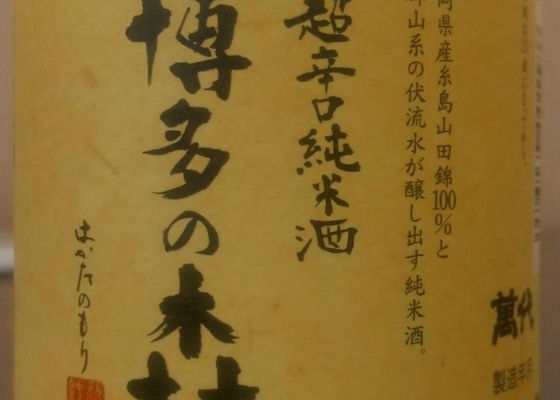 お酒は20歳になってから。
岡県産糸島山田錦100%と
山系の伏流水が醸し出す純米酒。
超辛口純米酒
博多の森
はかたのもり
萬代
製造年月